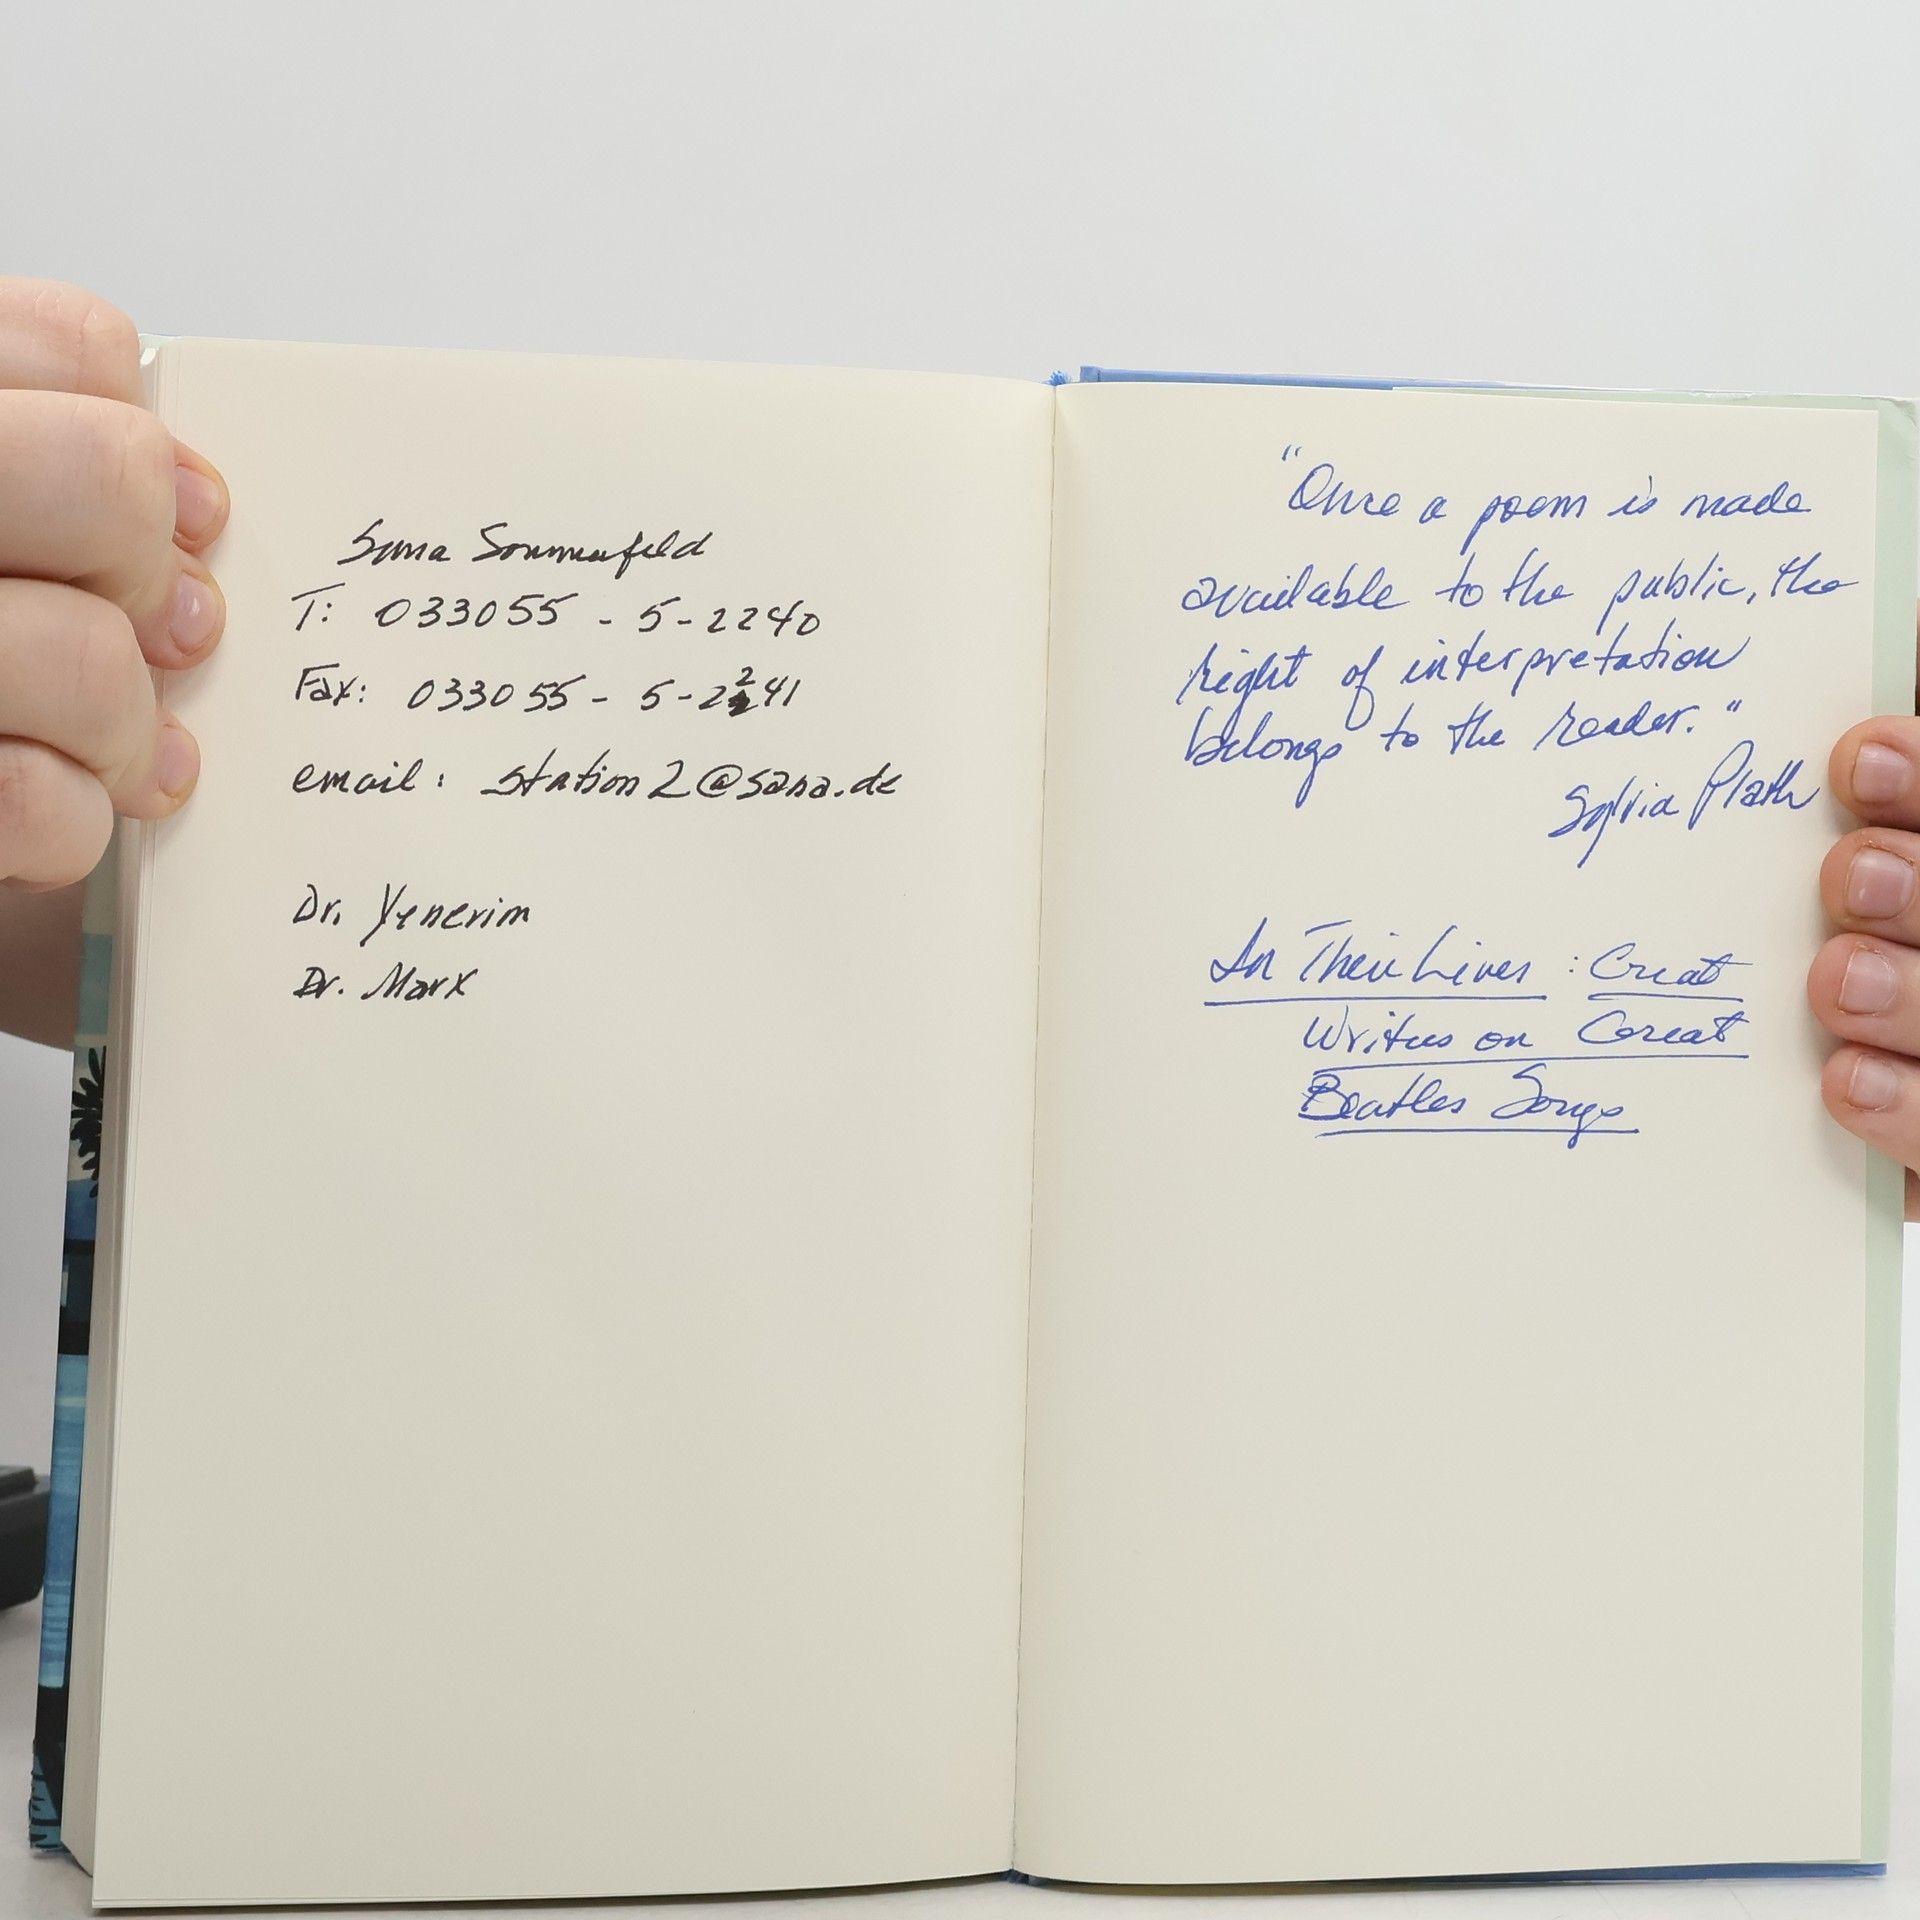 Sana Sommerfeld
T: 033055 - 5-2240
Fax: 033055 - 5-2241
email: station2@sana.de
Dr. Yenerim
Dr. Marx
"Once a poem is made
available to the public, the
right of interpretation
belongs to the reader."
Sylvia Plath
In Their Lives: Great
Writers on Great
Beatles Songs